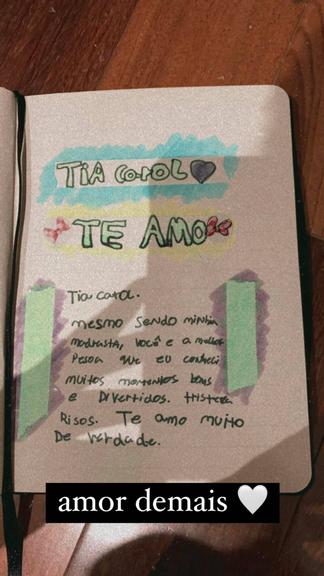 TiA CAROL 🖤
TE AMO
Tia Carol.
mesmo sendo minha
madrasta, você e a melhor
Pessoa que eu conheci
muitos momentos bons
e Divertidos. tristeza
Risos. Te amo muito
De verdade.
amor demais 🤍